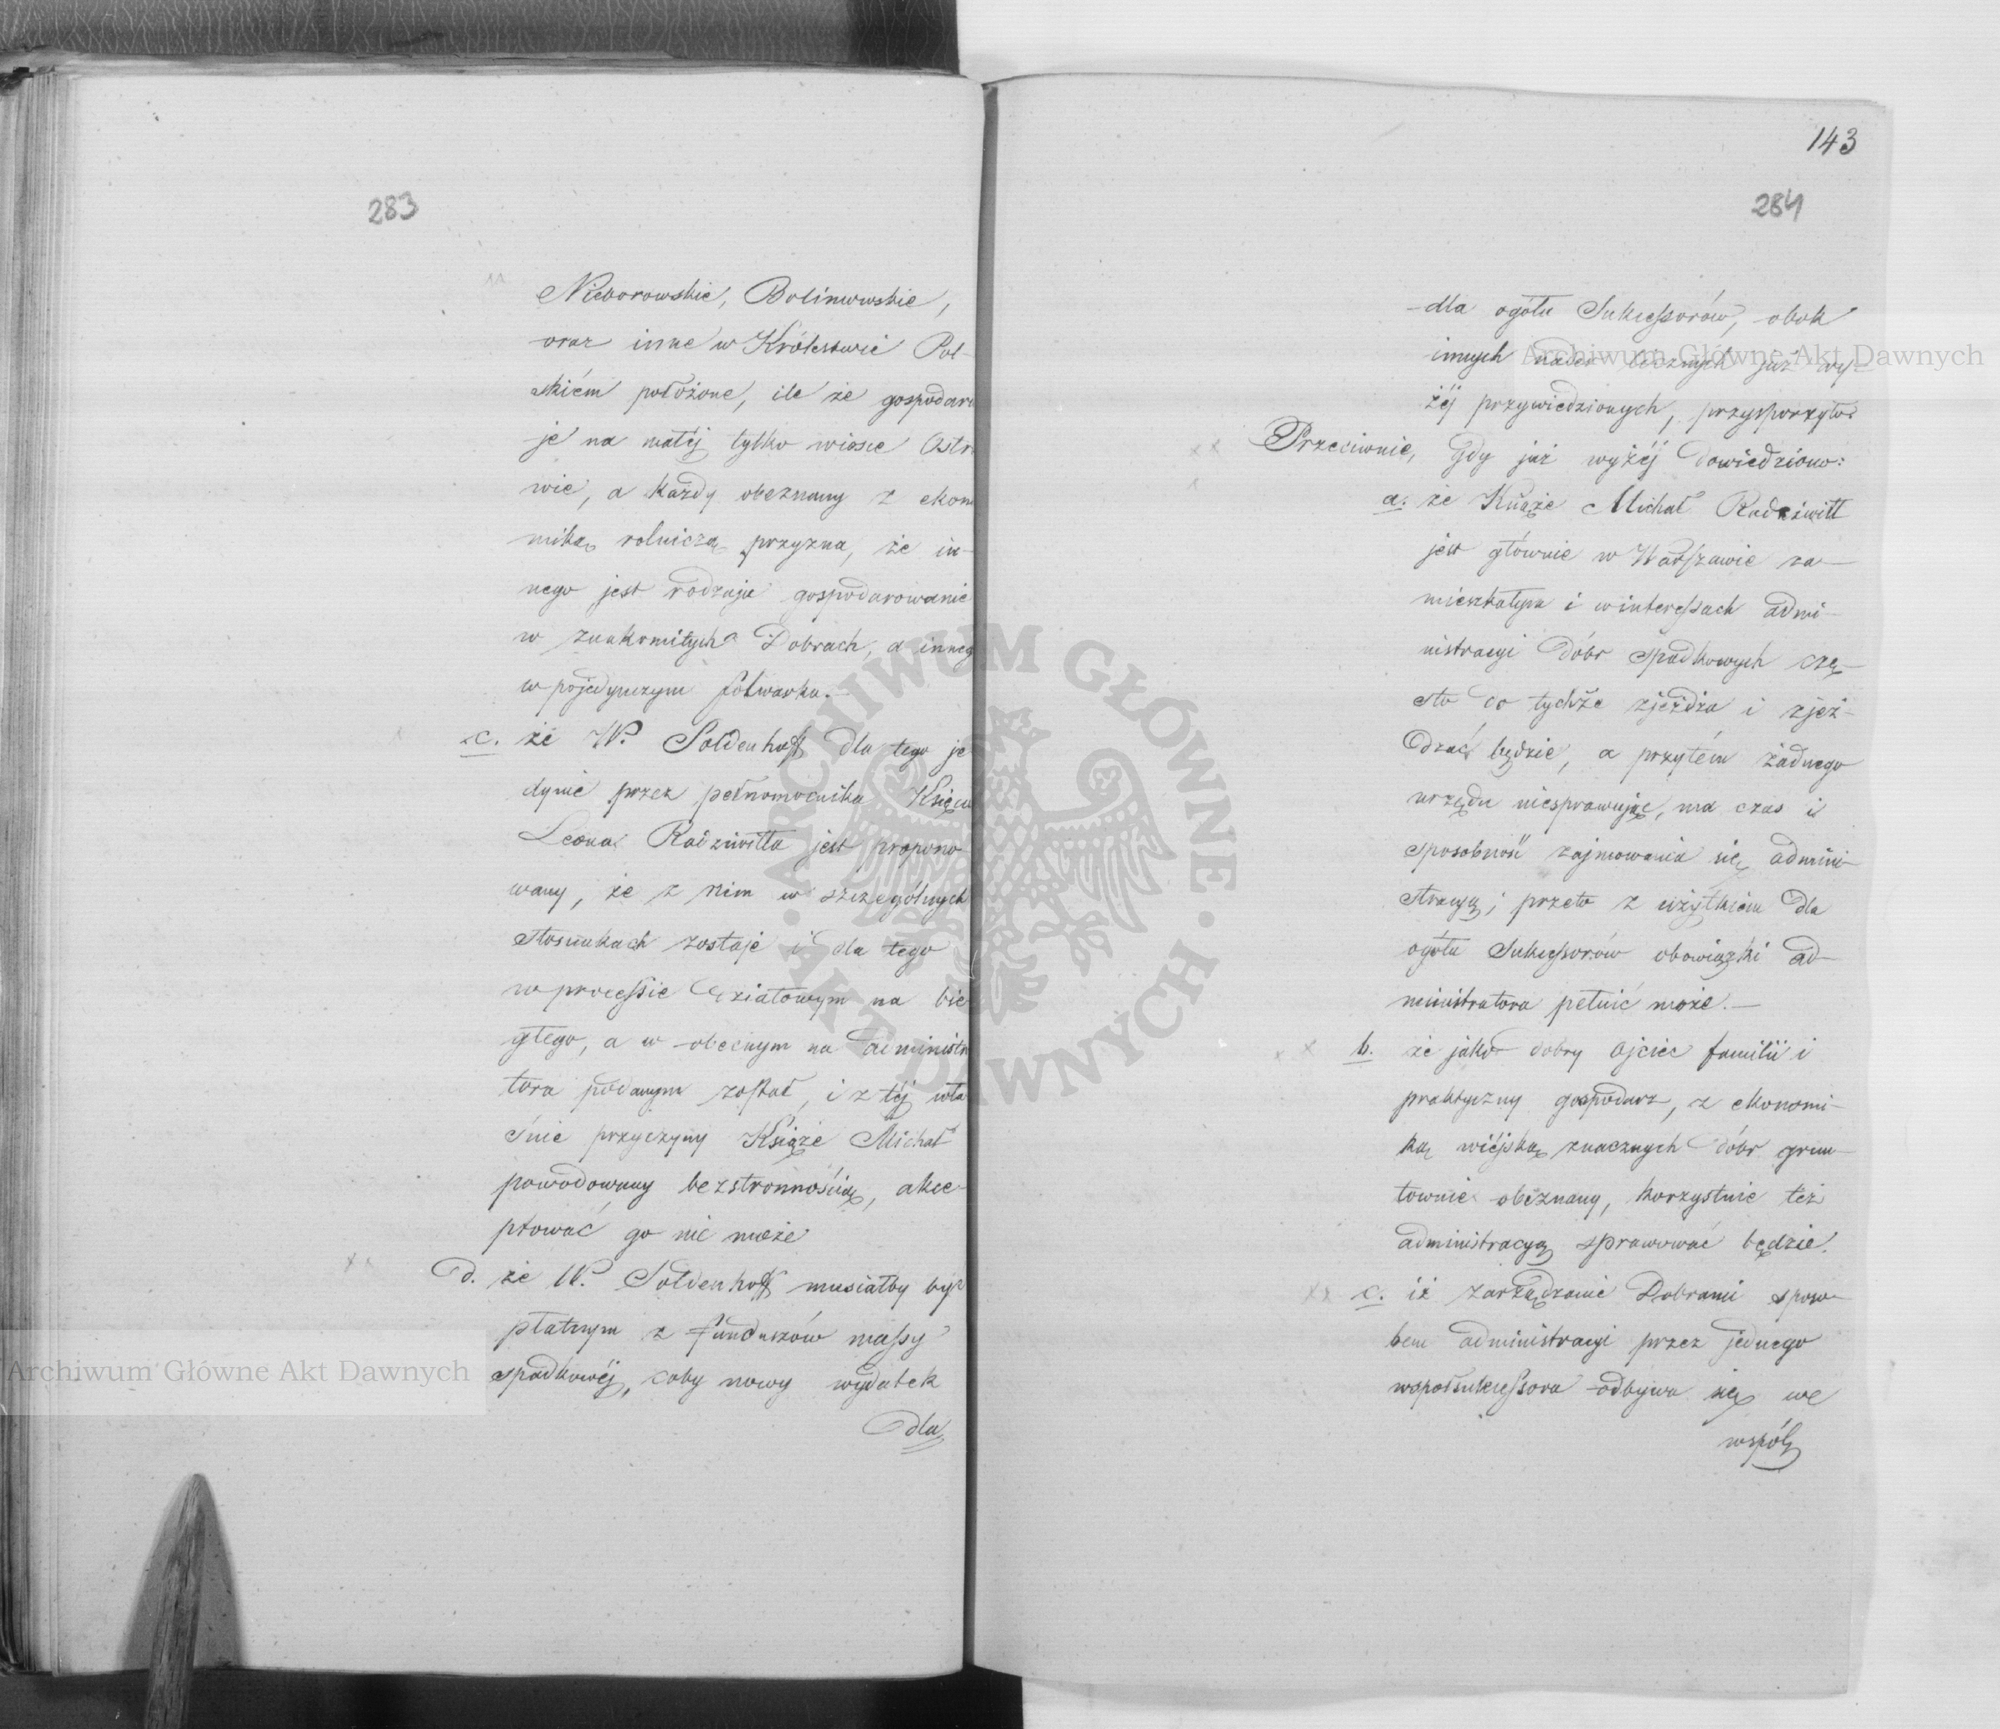 283
Nieborowskie, Bolimowskie,
oraz inne w Królestwie Pol-
skiém położone, ile że gospodaru
je na małéj tylko wiosce Ostro
wie, a każdy obeznany z ekono
miką rolniczą przyzna, że in-
nego jest rodzaju gospodarowanie
w znakomitych Dobrach, a innego
w pojedynczym folwarku.-
c. że W. Soldenhoff dla tego je
dynie przez pełnomocnika Księcia
Leona Radziwiłła jest propono-
wany, że z nim w szczególnych
stosunkach zostaje i dla tego
w processie działowym na bie
głego, a w obecnym na administra
tora podanym został, i z téj wła
śnie przyczyny Książe Michał
powodowany bezstronnością, akce-
ptować go nie może
d. że W. Soldenhoff musiałby być
płatnym z funduszów massy
spadkowéj, coby nowy wydatek
dla
143
284
dla ogółu Sukcessorów, obok
innych nader licznych już wy-
żéj przywiedzionych, przysporzyło.
Przeciwnie, Gdy już wyżéj dowiedziono:
a. że Książe Michał Radziwiłł
jest głównie w Warszawie za-
mieszkałym i w interessach admi-
nistracyi dóbr spadkowych czę-
sto do tychże zjeżdża i zjeż-
dzać będzie, a przytém żadnego
urzędu niesprawując, ma czas i
sposobność zajmowania się admini-
stracyą; przeto z użytkiem dla
ogółu Sukcessorów obowiązki ad-
ministratora pełnić może.-
b. że jako dobry Ojciec familii i
praktyczny gospodarz, z ekonomi-
ką wiéjską znacznych dóbr grun-
townie obeznany, korzystnie też
administracyą sprawować będzie.
c. iż zarządzanie Dobrami sposo-
bem administracyi przez jednego
współsukcessora odbywa się we
współ
ARCHIWUM GŁÓWNE AKT DAWNYCH
Archiwum Główne Akt Dawnych
Archiwum Główne Akt Dawnych